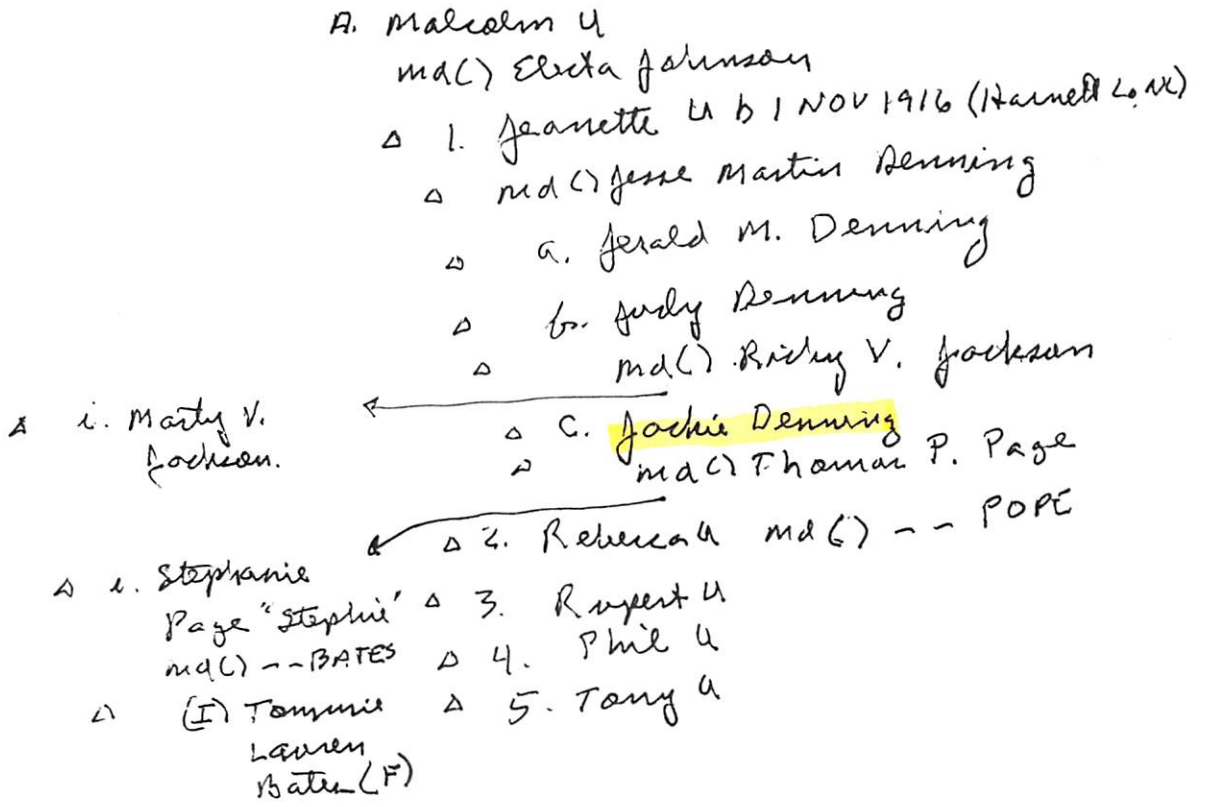 A. Malcolm U
md() Electa Johnson
△ 1. Jeanette U b 1 NOV 1916 (Harnett Co, NC)
△ md() Jesse Martin Denning
△ a. Jerald M. Denning
△ b. Judy Denning
△ md() Ricky V. Jackson
△ i. Marty V.
Jackson.
△ C. Jackie Denning
△ md() Thomas P. Page
△ 2. Rebecca U md() -- POPE
△ i. Stephanie
Page "Stephie"
md() -- BATES
△ (I) Tommie
Lauren
Bates (F)
△ 3. Rupert U
△ 4. Phil U
△ 5. Tony U